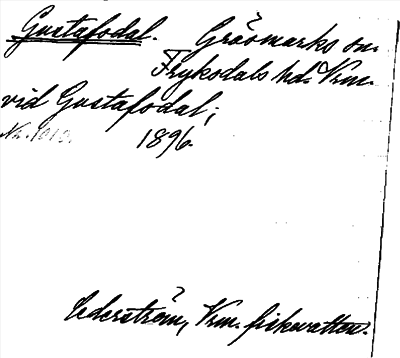 Gustafsdal. Gräsmarks sn.
Fryksdals hd. Vrm.
vid Gustafsdal;
1896.
Cederström, Vrm. fiskvatten.